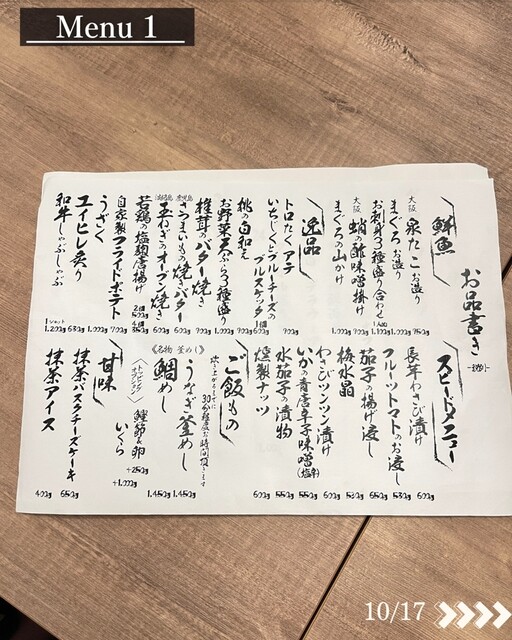 Menu 1
お品書き
鮮魚
大阪 泉たこお造り 750yen
まぐろお造り 1,190yen
お刺身3種盛り合わせ 1人前 1,190yen
大阪 蛸の酢味噌掛け 900yen
まぐろの山かけ 1,000yen
逸品
トロたくアテ 900yen
いちじくとブルーチーズの
ブルスケッタ 1個
桃の白和え
お野菜天ぷら3種盛り
椎茸のバター焼き
さつまいもの焼きバター
玉ねぎのオーブン焼き 600yen
若鶏の塩麹唐揚げ
自家製フライドポテト
うざく 1,000yen
エイヒレ炙り 630yen
和牛しゃぶしゃぶ 1,200yen
スピードメニュー
長年わさび漬け 600yen
フルーツトマトのお浸し 530yen
茄子の揚げ浸し 650yen
梅水晶 530yen
わさびツンツン漬け 600yen
いかの青唐辛子味噌(塩辛) 550yen
水茄子の漬物 550yen
燻製ナッツ 600yen
ご飯もの
炊き上がるまでに
30分程度お時間頂きます
《名物 釜めし》
うなぎ釜めし 1,450yen
鯛めし 1,450yen
〈トッピングオプション〉
いくら +1,000yen
鰹節と卵 +250yen
甘味
抹茶バスクチーズケーキ 650yen
抹茶アイス 400yen
10/17